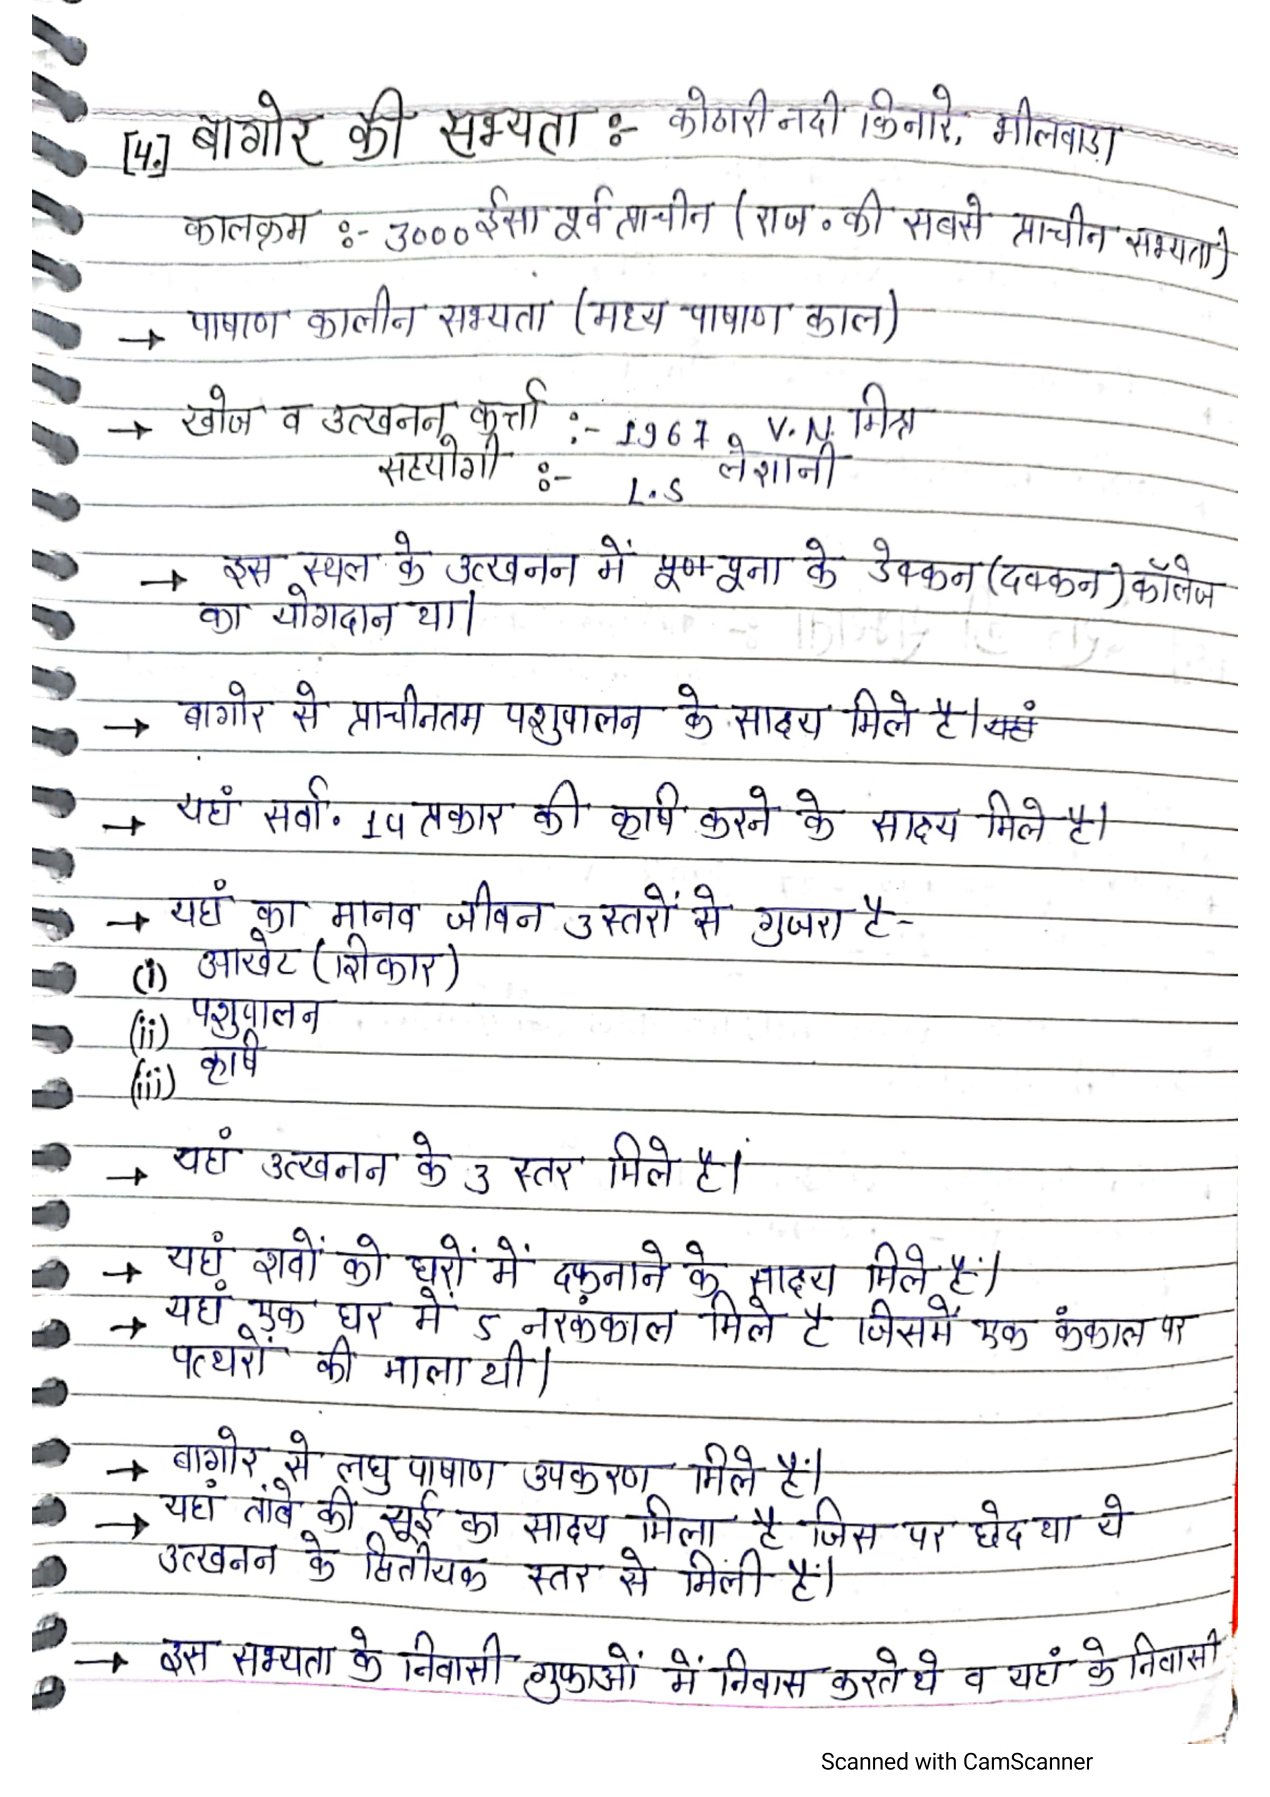 [4.] बागोर की सभ्यता :- कोठारी नदी किनारे, भीलवाड़ा
कालक्रम :- 3000 ईसा पूर्व प्राचीन (राज॰ की सबसे प्राचीन सभ्यता)
→ पाषाण कालीन सभ्यता (मध्य पाषाण काल)
→ खोज व उत्खनन कर्त्ता :- 1967 V.N. मिश्र
सहयोगी :- L.S लेशानी
→ इस स्थल के उत्खनन में पूना के डेक्कन (दक्कन) कॉलेज
का योगदान था।
→ बागोर से प्राचीनतम पशुपालन के साक्ष्य मिले है। यहां
→ यहां सर्वा. 14 प्रकार की कृषि करने के साक्ष्य मिले है।
→ यहां का मानव जीवन 3 स्तरों से गुजरा है-
(i) आखेट (शिकार)
(ii) पशुपालन
(iii) कृषि
→ यहां उत्खनन के 3 स्तर मिले है।
→ यहां शवों को घरों में दफनाने के साक्ष्य मिले हैं।
→ यहां एक घर में 5 नरकंकाल मिले है जिसमें एक कंकाल पर
पत्थरों की माला थी।
→ बागोर से लघु पाषाण उपकरण मिले हैं।
→ यहां तांबे की सूई का साक्ष्य मिला है जिस पर छेद था ये
उत्खनन के द्वितीयक स्तर से मिली हैं।
→ इस सभ्यता के निवासी गुफाओं में निवास करते थे व यहां के निवासी
Scanned with CamScanner